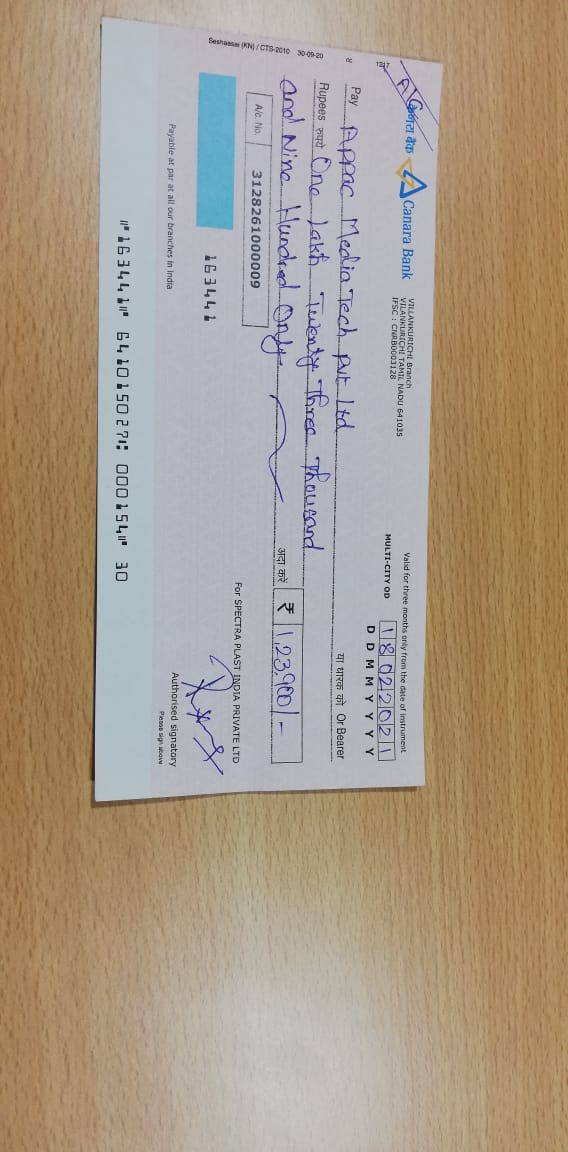 1217
A/C
केनरा बैंक Canara Bank
VILLANKURICHI Branch
VILANKURICHI TAMIL NADU 641035
IFSC : CNRB0003128
Valid for three months only from the date of instrument
MULTI-CITY OD
18022021
D D M M Y Y Y Y
Pay Appac Media Tech Pvt Ltd या धारक को Or Bearer
Rupees रुपये One Lakh Twenty Three Thousand
and Nine Hundred Only अदा करें ₹ 1,23,900/-
A/c. No. 3128261000009
For SPECTRA PLAST INDIA PRIVATE LTD
163441
Authorised signatory
Please sign above
Payable at par at all our branches in India
Seshaasai (KN) / CTS-2010 30-09-20
⑈163441⑈ 641015027⑆ 000154⑈ 30